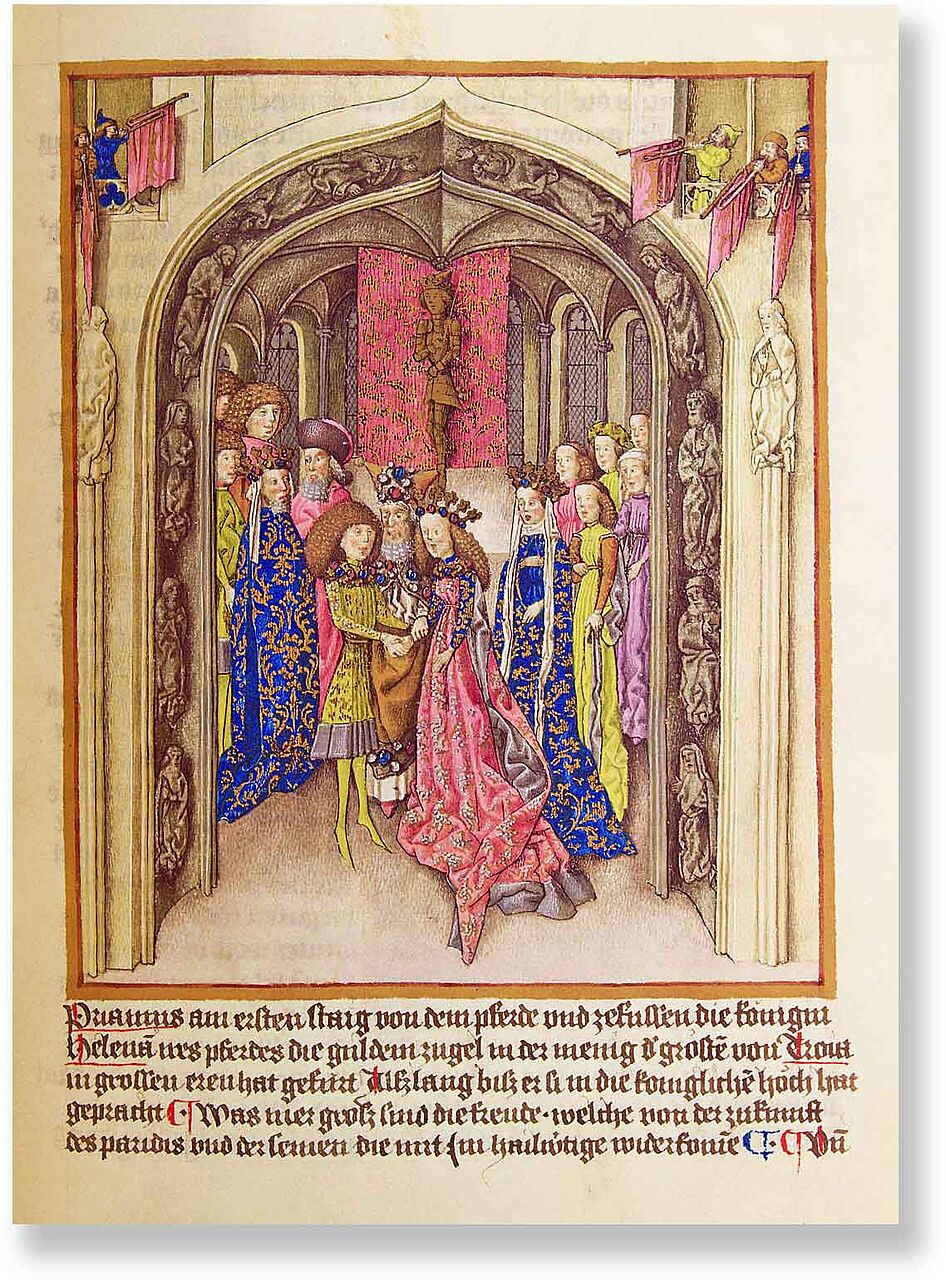 Priamus am ersten staig von dem pferde vnd zefussen die konigin
Helenā ires pferdes die guldein zugel in der menig d' grostē von Troia
in grossen eren hat gefürt Alßlang biß er si in die koniglichē hoch hat
gepracht ¶ Was mer groß sind die freude · welche von der zukunft
des paridis vnd der seinen die mit im hailwɔ̈tige widerkom̄e ¶ · ¶ Vn̄